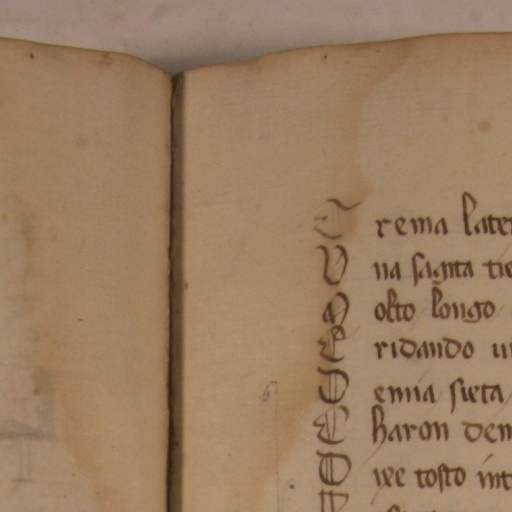 T rema la ter
V na sagita tie
M olto longo
E ridando
T emia sieta
C haron dem
D ixe tosto int